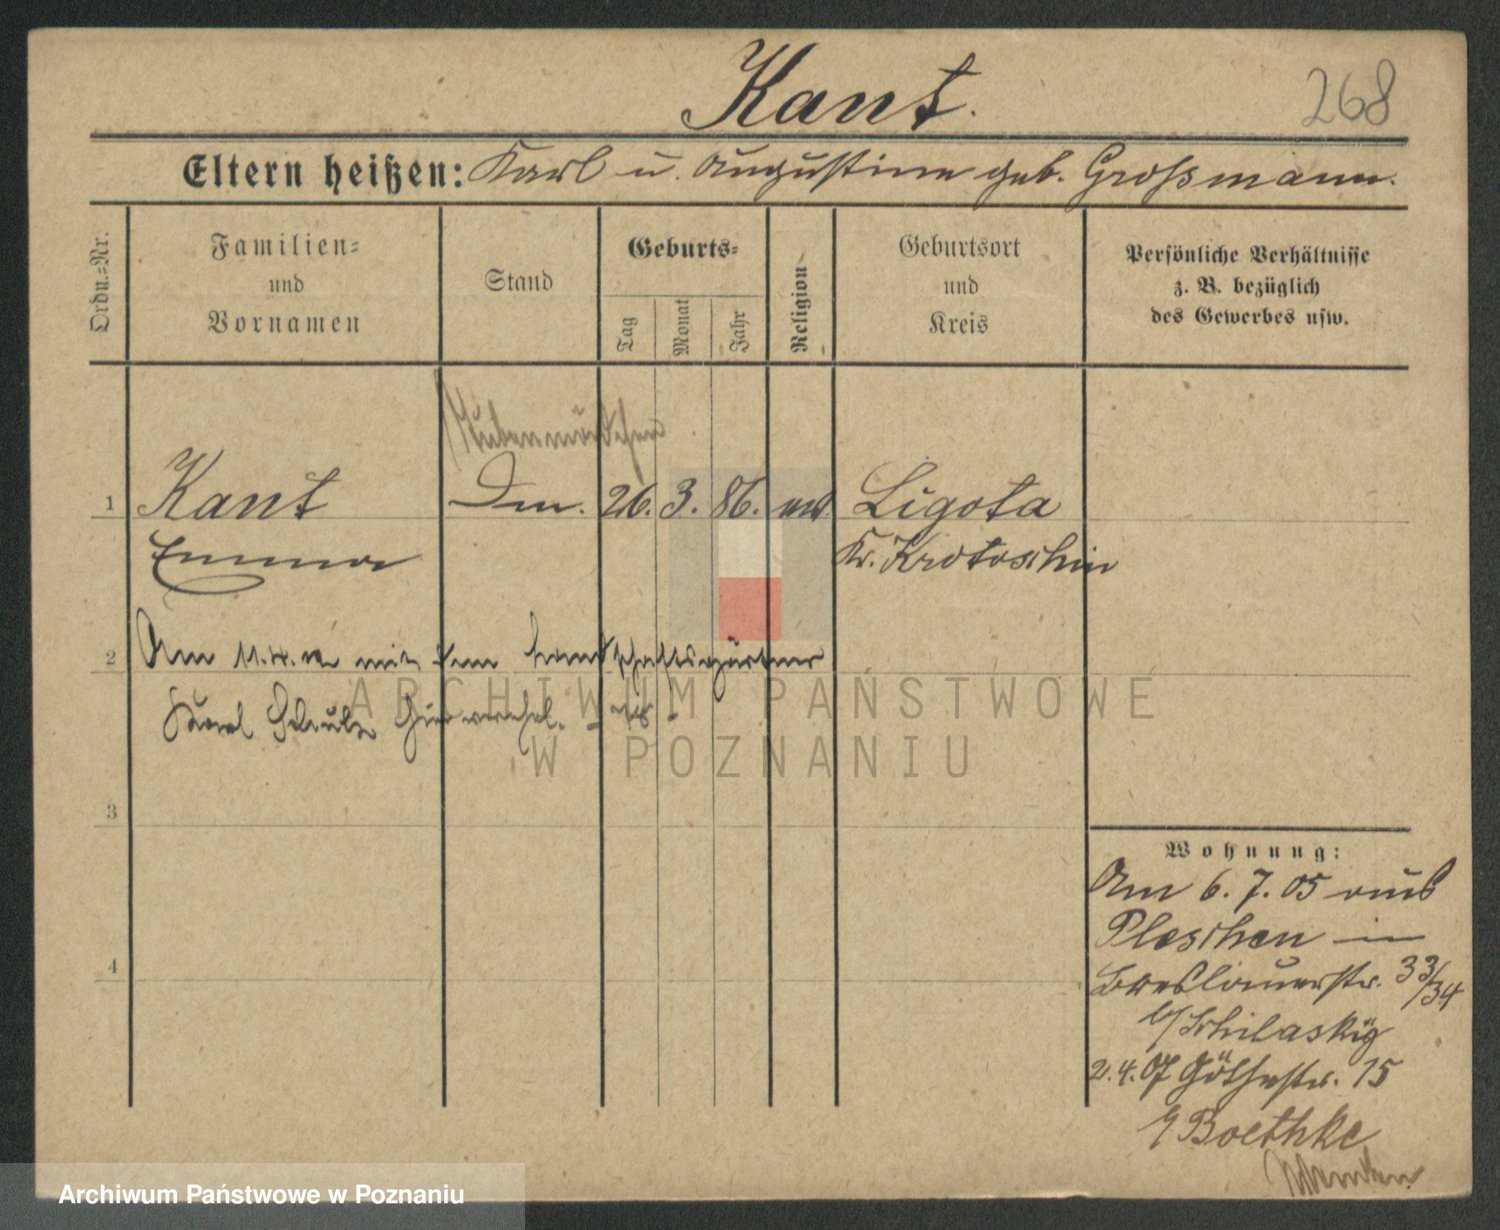 Kant.
268
Eltern heißen: Karl u. Augustine geb. Großmann.
Ordn.=Nr.
Familien=
und
Vornamen
Stand
Geburts=
Tag
Monat
Jahr
Religion
Geburtsort
und
Kreis
Persönliche Verhältnisse
z. B. bezüglich
des Gewerbes usw.
Stubenmädchen
1 Kant 26. 3. 86. Ligota
Emma Kr. Krotoschin
2 Am mit dem Landschaftsgärtner
Karl Schulz verehel.
ARCHIWUM PAŃSTWOWE
W POZNANIU
3
4
Wohnung:
Am 6. 7. 05 aus
Pleschen in
Breslauerstr. 33/34
b/Schilasky
2. 4. 07 Göthestr. 15
Boethke
Archiwum Państwowe w Poznaniu